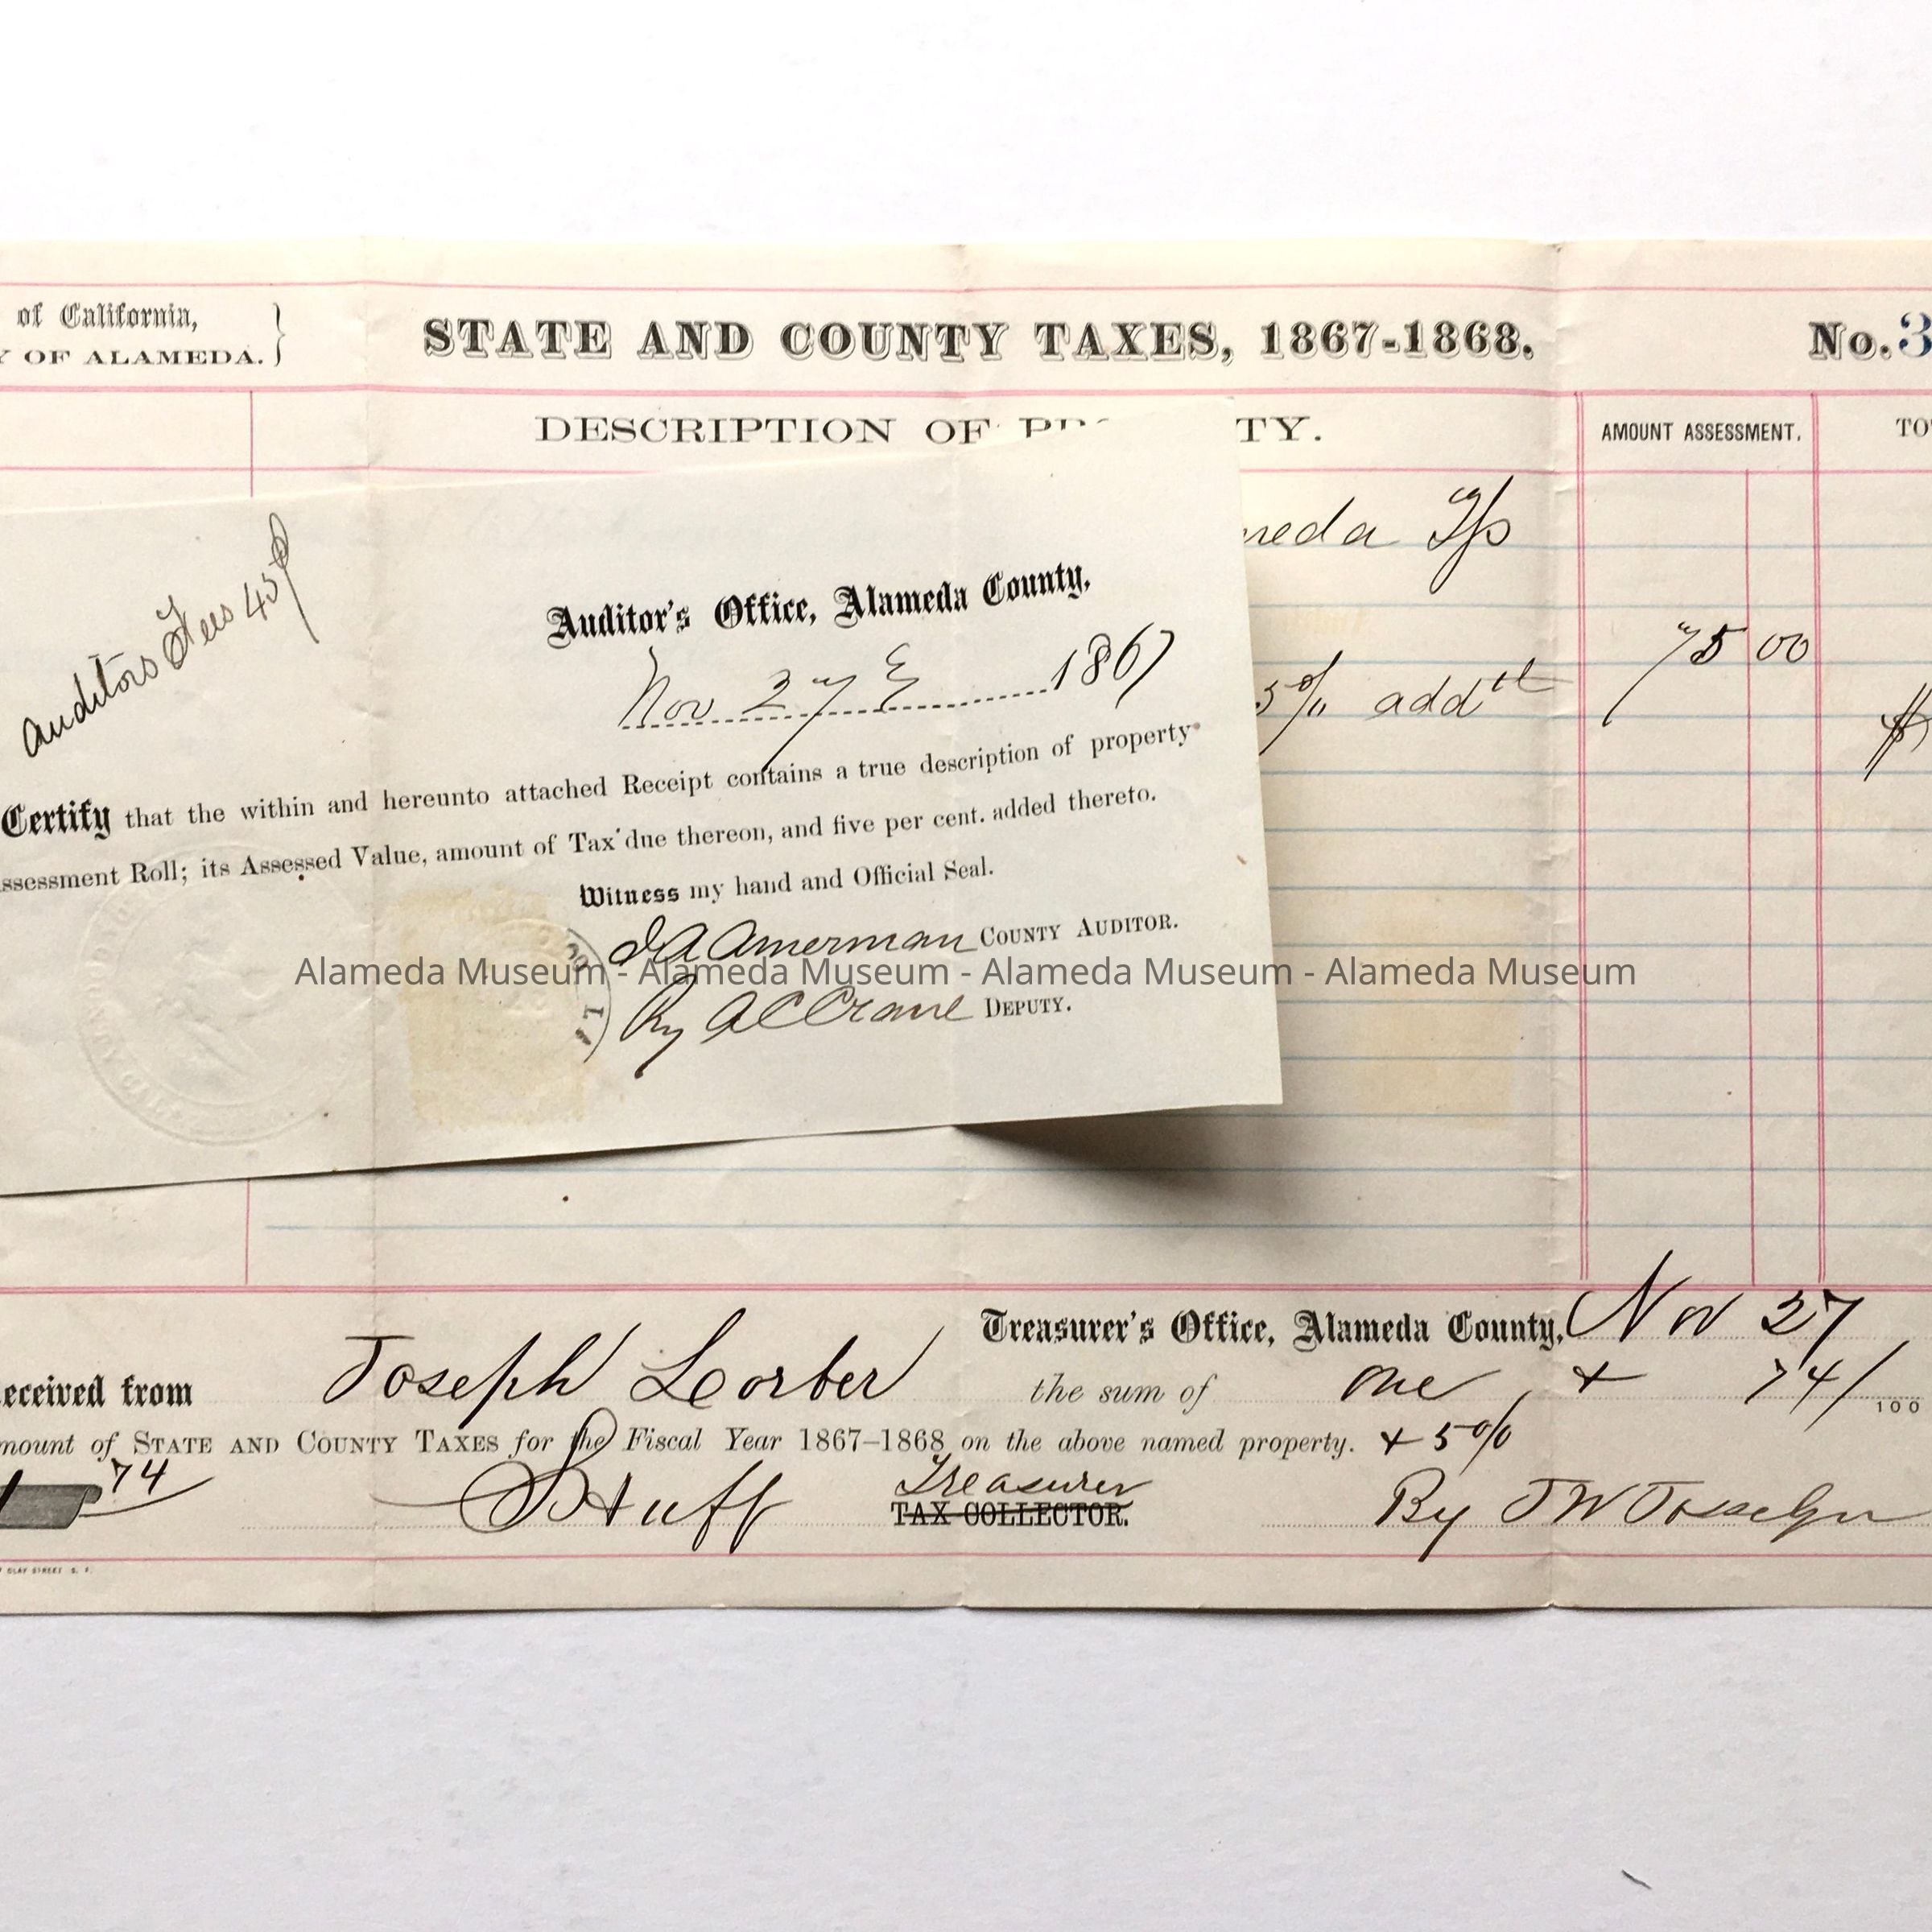 of California,
Y OF ALAMEDA.
STATE AND COUNTY TAXES, 1867-1868.
No. 3
DESCRIPTION OF PR TY.
AMOUNT ASSESSMENT.
TO
meda T/p
75 00
5% addtl
$
Auditors Fees 45¢
Auditor's Office, Alameda County,
Nov 27 1867
Certify that the within and hereunto attached Receipt contains a true description of property
ssessment Roll; its Assessed Value, amount of Tax due thereon, and five per cent. added thereto.
Witness my hand and Official Seal.
J A Amerman COUNTY AUDITOR.
Alameda Museum - Alameda Museum - Alameda Museum - Alameda Museum
By A C Crane DEPUTY.
Treasurer's Office, Alameda County, Nov 27
eceived from Joseph Lorber the sum of one + 74/100
mount of STATE AND COUNTY TAXES for the Fiscal Year 1867–1868 on the above named property. + 5%
74
Huff Treasurer
TAX COLLECTOR.
By J W Josselyn
CLAY STREET S. F.